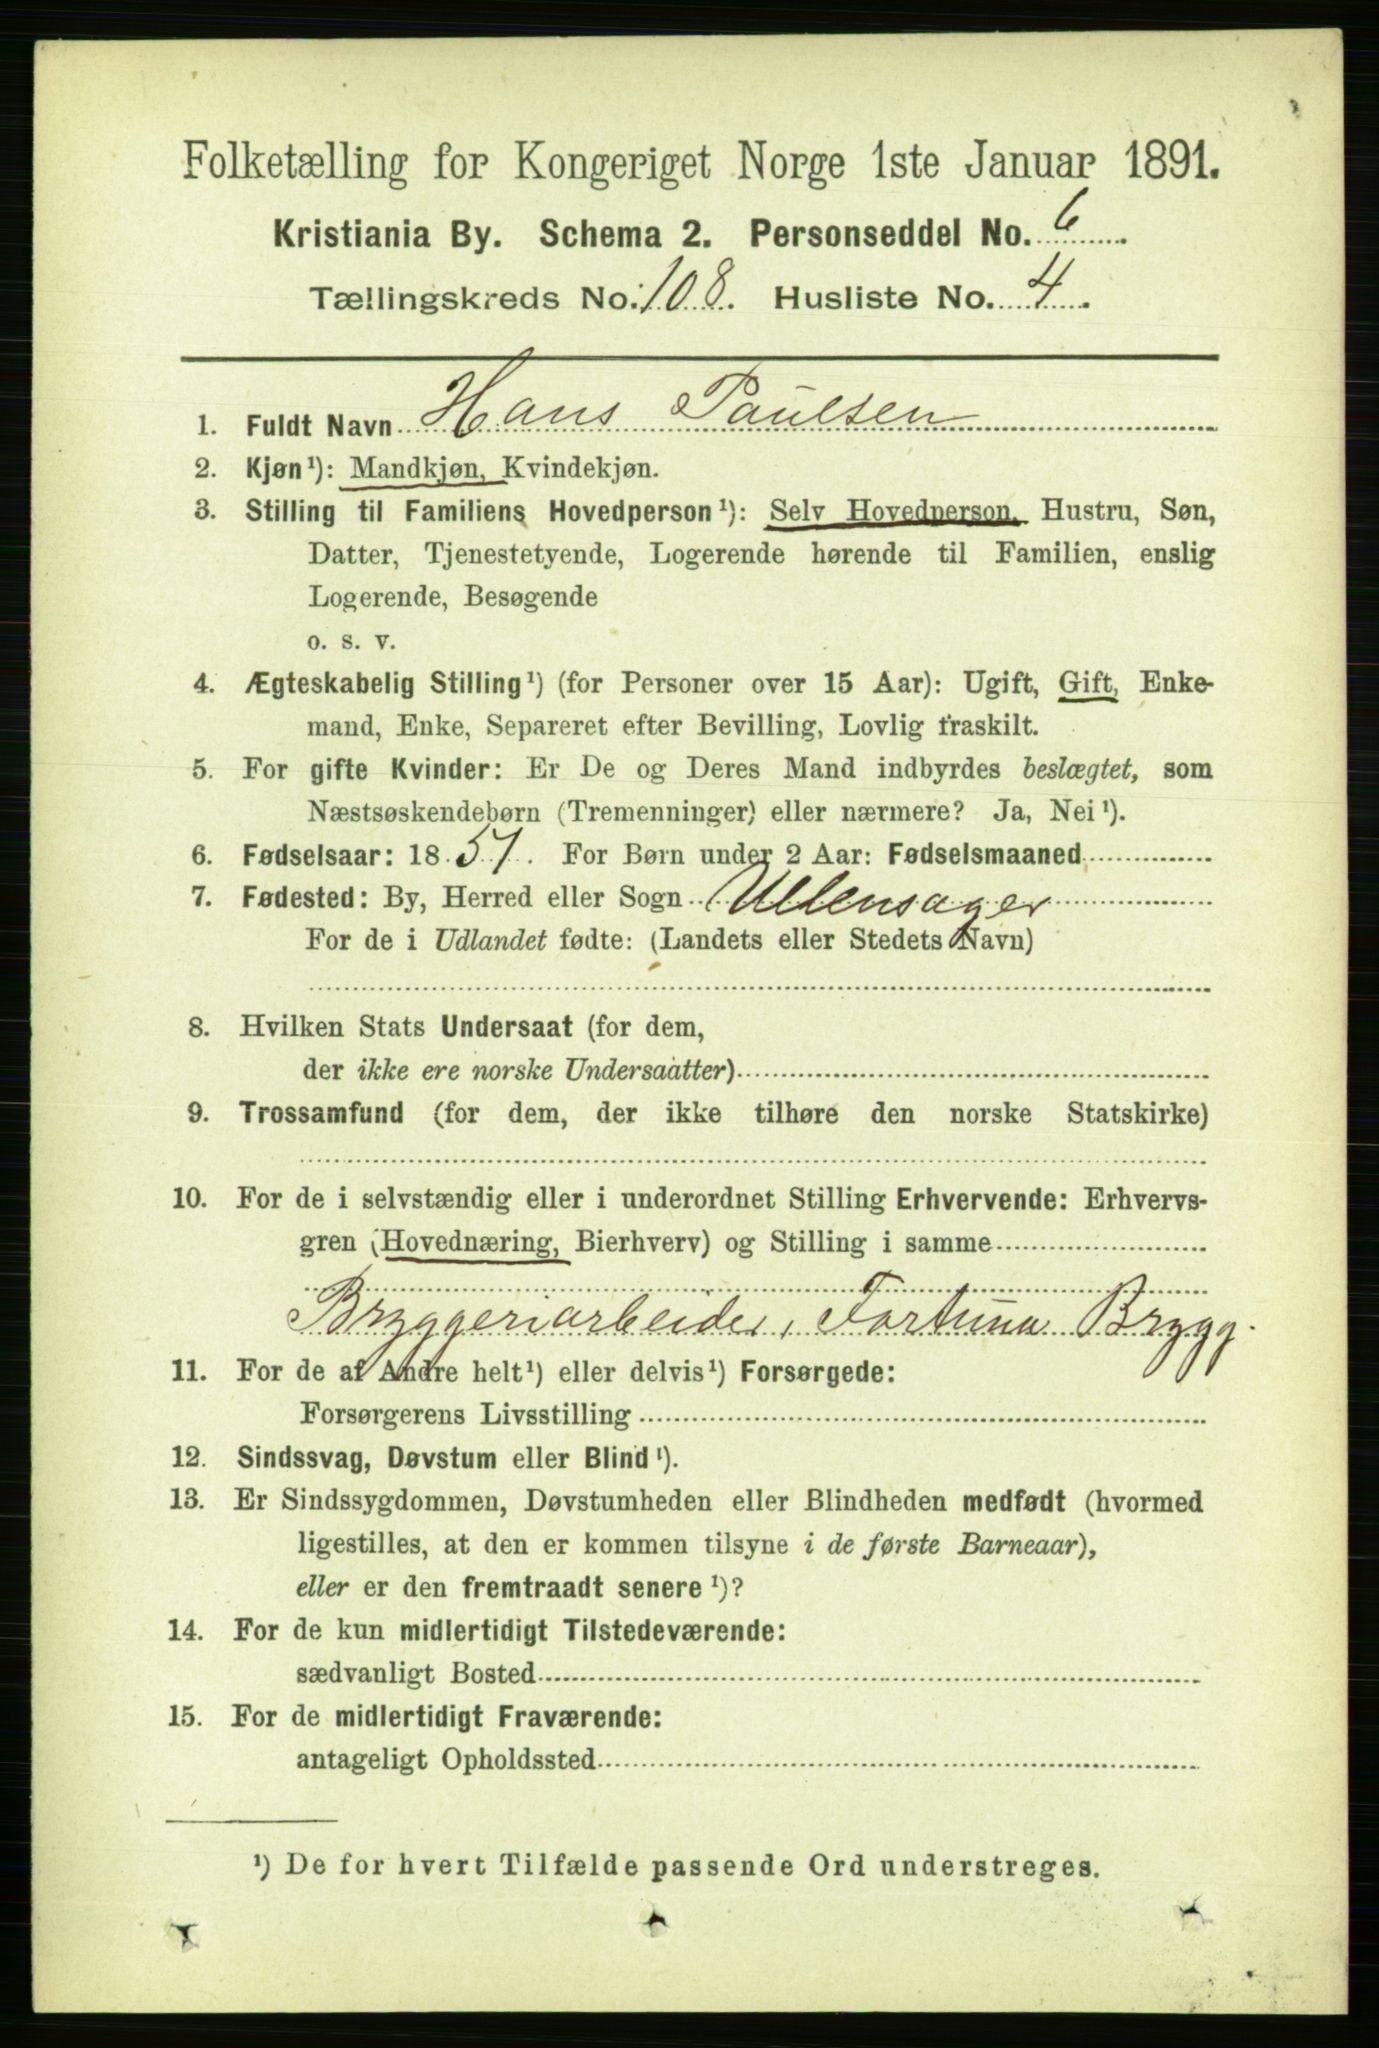 Folketælling for Kongeriget Norge 1ste Januar 1891.
Kristiania By. Schema 2. Personseddel No. 6
Tællingskreds No. 108. Husliste No. 4.
1. Fuldt Navn Hans Paulsen
2. Kjøn¹): Mandkjøn, Kvindekjøn.
3. Stilling til Familiens Hovedperson¹): Selv Hovedperson, Hustru, Søn,
Datter, Tjenestetyende, Logerende hørende til Familien, enslig
Logerende, Besøgende
o. s. v.
4. Ægteskabelig Stilling¹) (for Personer over 15 Aar): Ugift, Gift, Enke-
mand, Enke, Separeret efter Bevilling, Lovlig fraskilt.
5. For gifte Kvinder: Er De og Deres Mand indbyrdes beslægtet, som
Næstsøskendebørn (Tremenninger) eller nærmere? Ja, Nei¹).
6. Fødselsaar: 1857. For Børn under 2 Aar: Fødselsmaaned
7. Fødested: By, Herred eller Sogn Ullensager
For de i Udlandet fødte: (Landets eller Stedets Navn)
8. Hvilken Stats Undersaat (for dem,
der ikke ere norske Undersaatter)
9. Trossamfund (for dem, der ikke tilhøre den norske Statskirke)
10. For de i selvstændig eller i underordnet Stilling Erhvervende: Erhvervs-
gren (Hovednæring, Bierhverv) og Stilling i samme
Bryggeriarbeider, Fortuna Brygg.
11. For de af Andre helt¹) eller delvis¹) Forsørgede:
Forsørgerens Livsstilling
12. Sindssvag, Døvstum eller Blind¹).
13. Er Sindssygdommen, Døvstumheden eller Blindheden medfødt (hvormed
ligestilles, at den er kommen tilsyne i de første Barneaar),
eller er den fremtraadt senere¹)?
14. For de kun midlertidigt Tilstedeværende:
sædvanligt Bosted
15. For de midlertidigt Fraværende:
antageligt Opholdssted
¹) De for hvert Tilfælde passende Ord understreges.